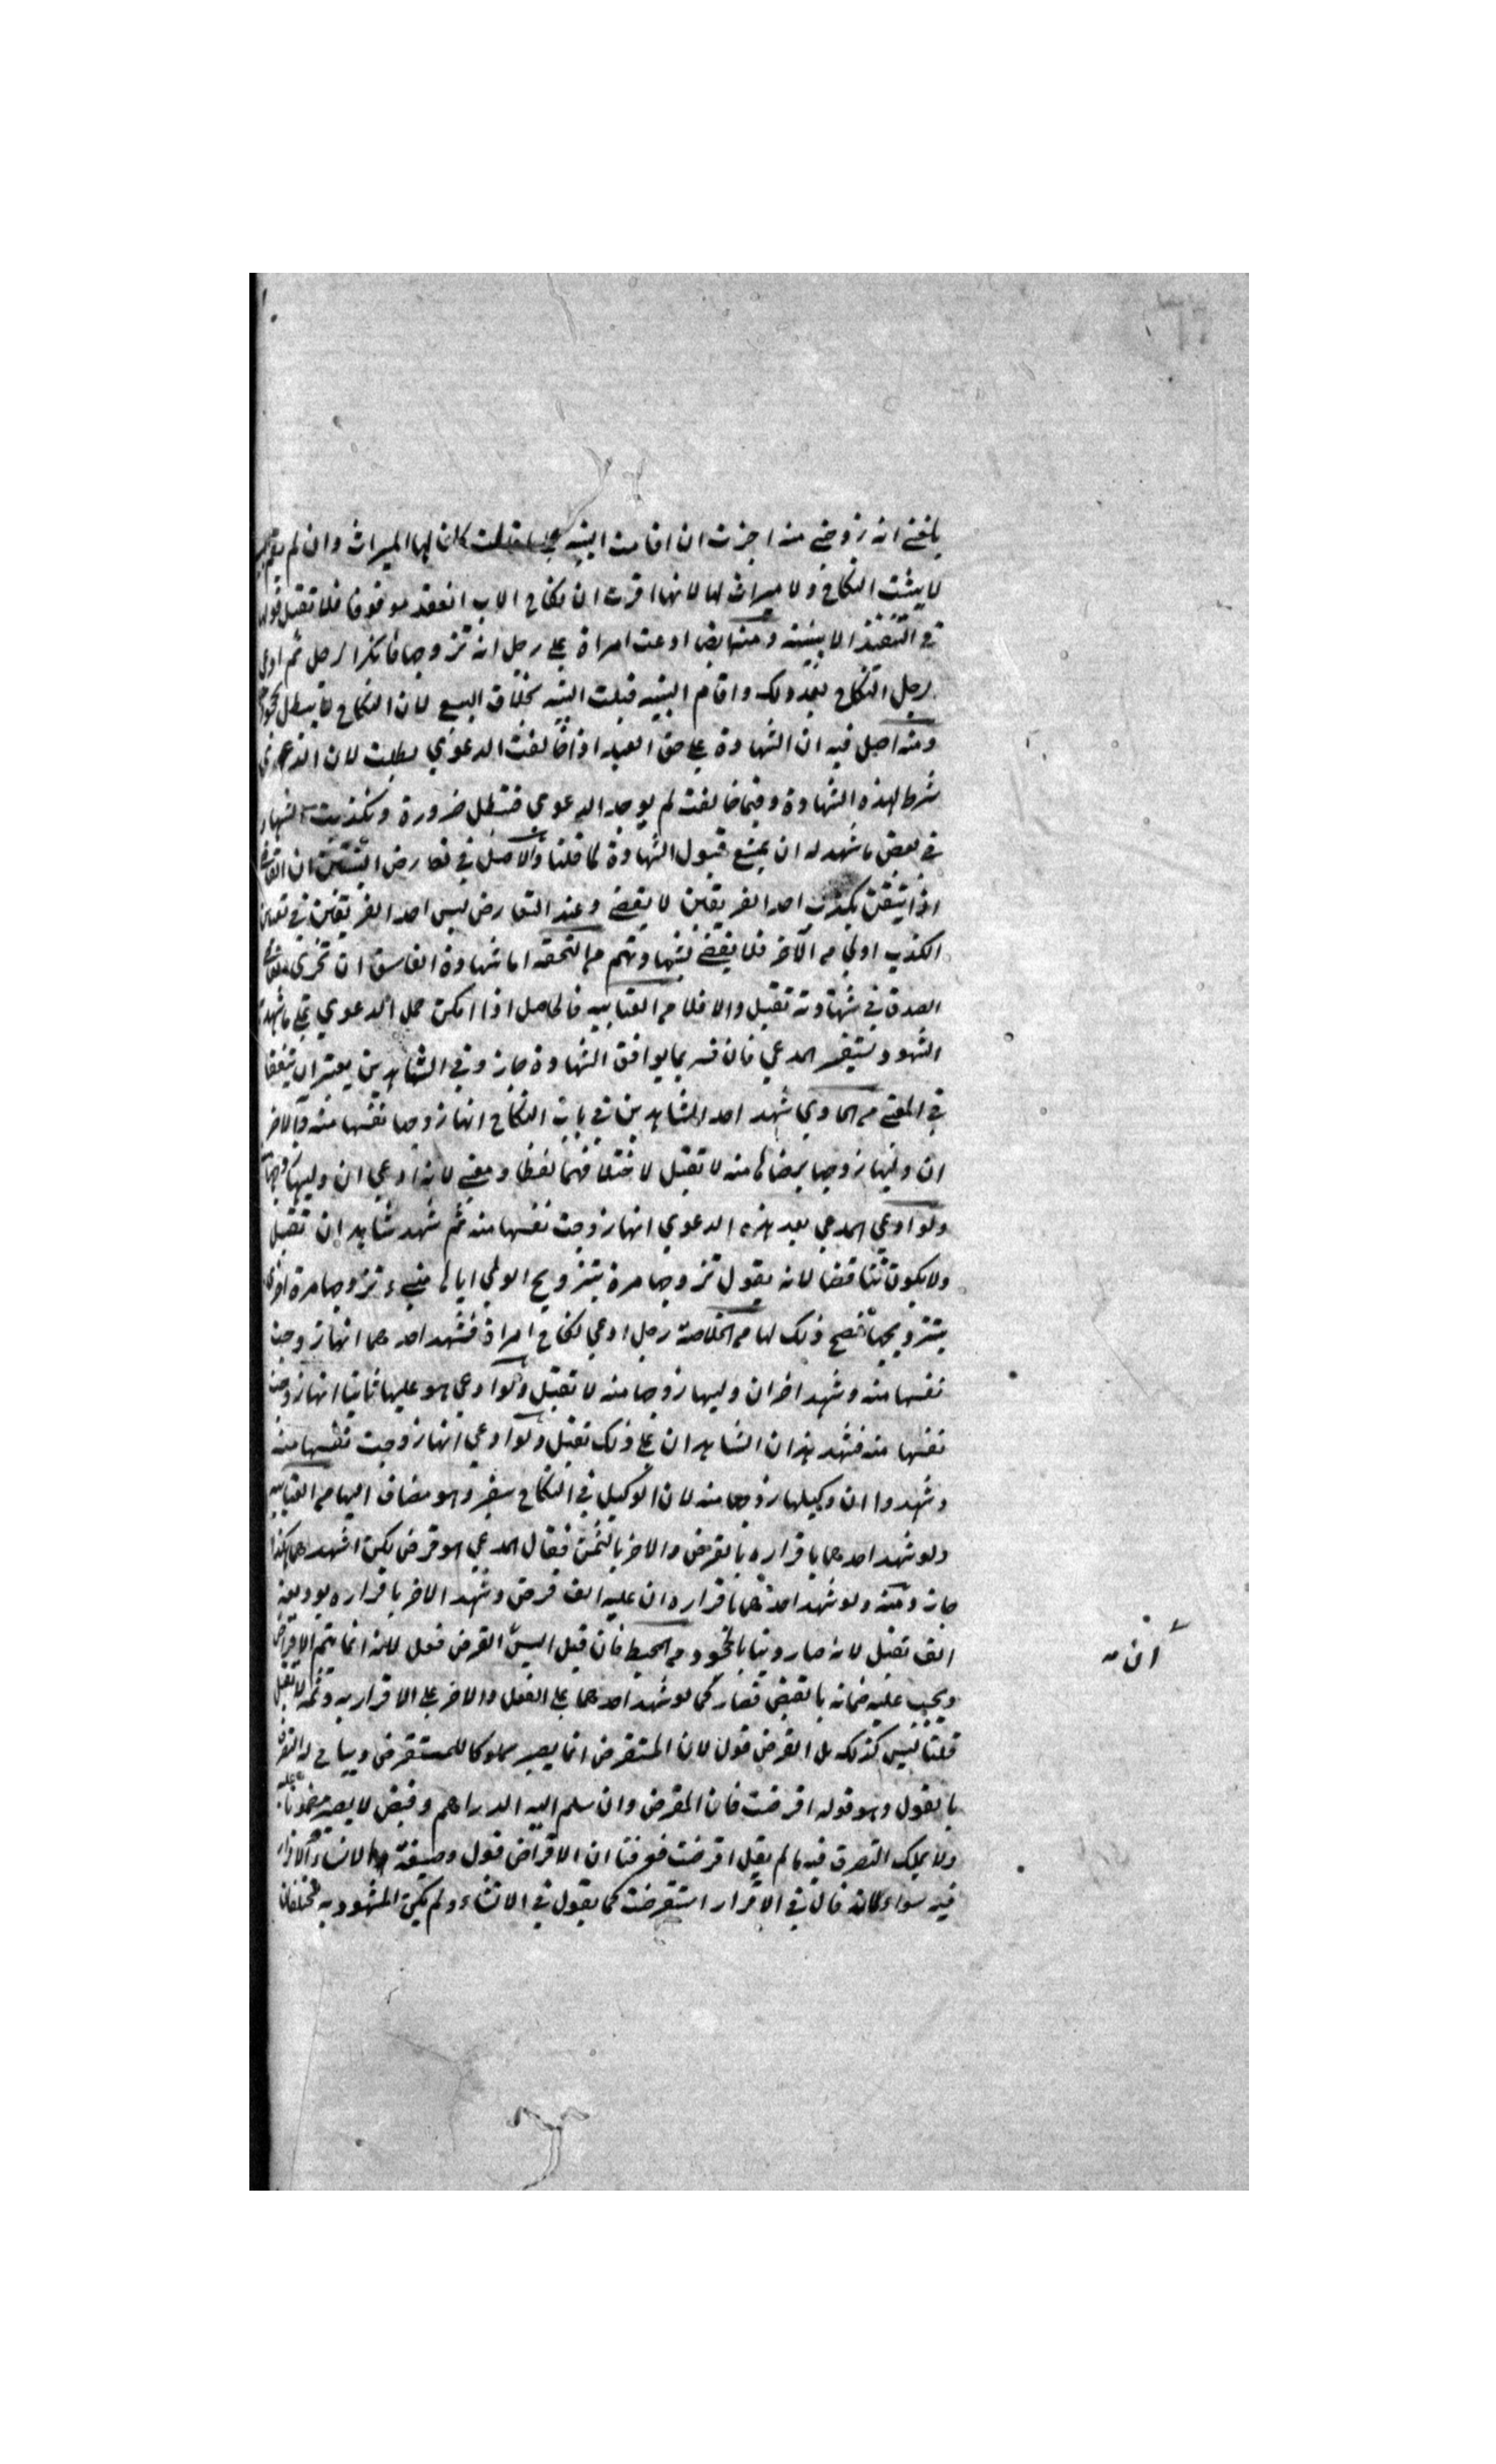 بلغني انه زوجني منه اجزت ان اقامت البينة على ما قالت كان لها الميراث وان لم تقم
لا يثبت النكاح ولا ميراث لها لانها اقرت ان نكاح الاب انعقد موقوفا فلا تقبل قولها
في التنفيذ الا ببينة ومنه ايضا ادعت امراة على رجل انه تزوجها فانكر الرجل ثم ادعى
الرجل النكاح بعد ذلك واقام البينة قبلت البينة بخلاف البيع لان النكاح لا يبطل بالجحود
ومنه اصل فيه ان الشهادة على حق العبد اذا خالفت الدعوي بطلت لان الدعوي
شرط لهذه الشهادة وفيما خالفت لم يوجد الدعوي فتبطل ضرورة وتكذيب الشهادة
في بعض ما شهد له ان يمنع قبول الشهادة لما قلنا والاصل في تعارض البينتين ان القاضي
اذا تيقن بكذب احد الفريقين لا يقضي وعند التعارض ليس احد الفريقين في تعيين
الكذب اولى من الاخر فلا يقضي بشهادتهم من التحفة اما شهادة الفاسق ان تحرى القاضي
الصدق في شهادته تقبل والا فلا من العتابيه فالحاصل اذا امكن حمل الدعوي على ما شهد
الشهود يستفسر المدعي فان فسر بما يوافق الشهادة جاز وفي الشاهدين يعتبر ان يتفقا
في المعنى من الحاوي شهد احد الشاهدين في باب النكاح انها زوجها نفسها منه والاخر
ان وليها زوجها برضاها منه لا تقبل لاختلافهما لفظا ومعنى لانه ادعي ان وليها زوجها
ولو ادعي المدعي بعد هذه الدعوي انها زوجت نفسها منه ثم شهد شاهدان تقبل
ولا يكون تناقضا لانه يقول تزوجها مرة بتزويج الولي اياها مني وتزوجها مرة اخرى
بتزويجها فصح ذلك لها من الخلاصة رجل ادعي نكاح امراة فشهد احدهما انها زوجت
نفسها منه وشهد اخر ان وليها زوجها منه لا تقبل ولو ادعي هو عليها ثانيا انها زوجت
نفسها منه فشهد هذان الشاهدان على ذلك تقبل ولو ادعي انها زوجت نفسها منه
وشهدوا ان وكيلها زوجها منه لان الوكيل في النكاح سفير وهو مضاف اليها من العتابيه
ولو شهد احدهما باقراره بالقرض والاخر بالثمن فقال المدعي هو قرض لكن اشهدهما هكذا
جاز ومنه ولو شهد احدهما باقراره ان عليه الف قرض وشهد الاخر باقراره بوديعة
الف تقبل لانه صار دينا بالجحود من المحيط فان قيل اليس القرض فعل لانه انما يتم الاقراض
ويجب عليه ضمانه بالقبض فصار كما لو شهد احدهما على الفعل والاخر على الاقرار به وثمه لا تقبل
قلنا ليس كذلك بل القرض قول لان المستقرض انما يصير مملوكا للمستقرض ويباح له التصرف
بالقول وهو قوله اقرضت فان المقرض وان سلم اليه الدراهم وقبض لا يصير مضمونا عليه
ولا يملك التصرف فيه ما لم يقل اقرضت فعرفنا ان الاقراض قول وصيغة الانشاء والاقرار
فيه سواء كانه قال في الاقرار استقرضت كما يقول في الانشاء ولم يكن المشهود به مختلفا
ان